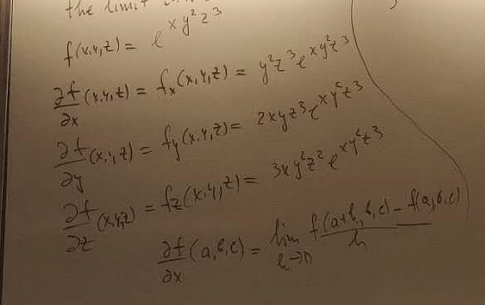 the limit
f(x,y,z) = e^{xy²z³}
∂f/∂x (x,y,z) = f_x(x,y,z) = y²z³e^{xy²z³}
∂f/∂y (x,y,z) = f_y(x,y,z) = 2xyz³e^{xy²z³}
∂f/∂z (x,y,z) = f_z(x,y,z) = 3xy²z²e^{xy²z³}
∂f/∂x (a,b,c) = lim_{h→0} (f(a+h,b,c) - f(a,b,c))/h